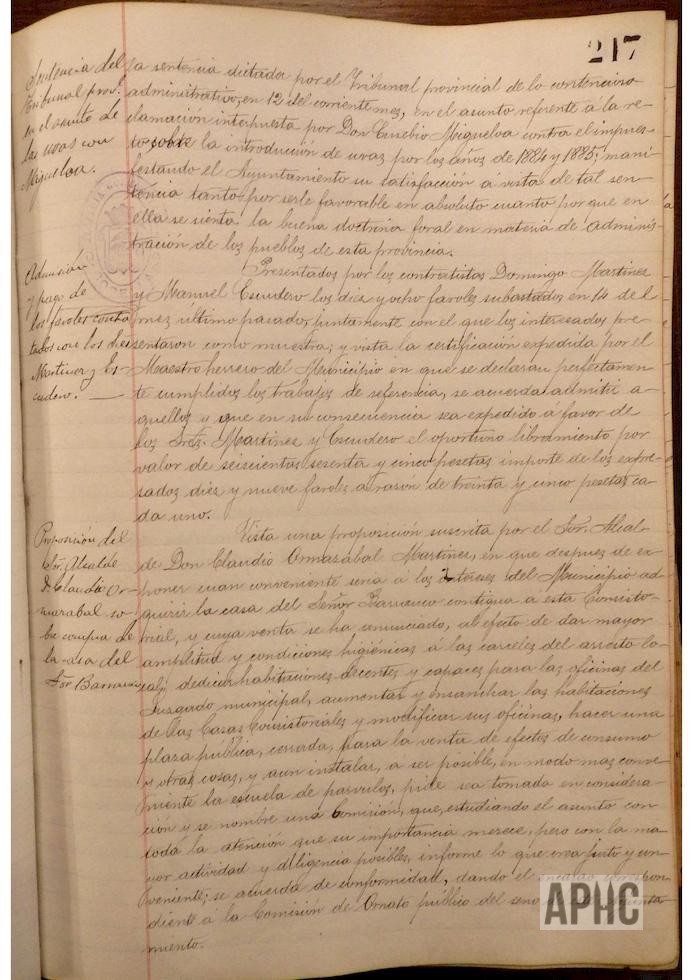 217
Sentencia del
Tribunal prov.l
en el asunto de
las uvas con
Migueloa.
la sentencia dictada por el Tribunal provincial de lo contencioso
administrativo, en 12 del corriente mes, en el asunto referente á la re-
clamación interpuesta por Don Eusebio Migueloa contra el impues-
to sobre la introducción de uvas por los años de 1884 y 1885; mani-
festando el Ayuntamiento su satisfacción á vista de tal sen-
tencia tanto por serle favorable en absoluto cuanto por que en
ella se sienta la buena doctrina foral en materia de adminis-
tración de los pueblos de esta provincia.
Admisión
y pago de
los faroles contra
tados con los Sres
Martinez y Es-
cudero. —
Presentados por los contratistas Domingo Martinez
y Manuel Escudero los diez y ocho faroles subastados en 14 del
mes ultimo pasado, juntamente con el que los interesados pre-
sentaron como muestra; y vista la certificación expedida por el
Maestro herrero del Municipio en que se declaran perfectamen-
te cumplidos los trabajos de referencia, se acuerda admitir a-
quellos y que en su consecuencia sea expedido á favor de
los Sres. Martinez y Escudero el oportuno libramiento por
valor de seiscientas sesenta y cinco pesetas importe de los expre-
sados diez y nueve faroles a razon de treinta y cinco pesetas ca-
da uno.
Proposición del
Sor. Alcalde
D. Claudio Or-
mazabal so-
bre compra de
la casa del
Sor Barranco
Vista una proposición suscrita por el Sor. Alcal-
de Don Claudio Ormazabal Martinez, en que despues de ex-
poner cuan conveniente seria á los intereses del Municipio ad-
quirir la casa del Señor Barranco contigua á esta Consisto-
rial, y cuya venta se ha anunciado, al efecto de dar mayor
amplitud y condiciones higiénicas á las carceles del arresto lo-
cal, dedicar habitaciones decentes y capaces para las oficinas del
Juzgado municipal, aumentar y ensanchar las habitaciones
de las Casas Consistoriales y modificar sus oficinas, hacer una
plaza publica, cerrada, para la venta de efectos de consumo
y otras cosas, y aun instalar, á ser posible, en modo mas conve-
niente la escuela de parvulos, pide sea tomada en considera-
ción y se nombre una Comisión, que, estudiando el asunto con
toda la atención que su importancia merece, pero con la ma-
yor actividad y diligencia posibles, informe lo que crea justo y con-
veniente; se acuerda de conformidad, dando el encargo correspon-
diente á la Comisión de Ornato público del seno de este Ayunta-
miento.
APHC